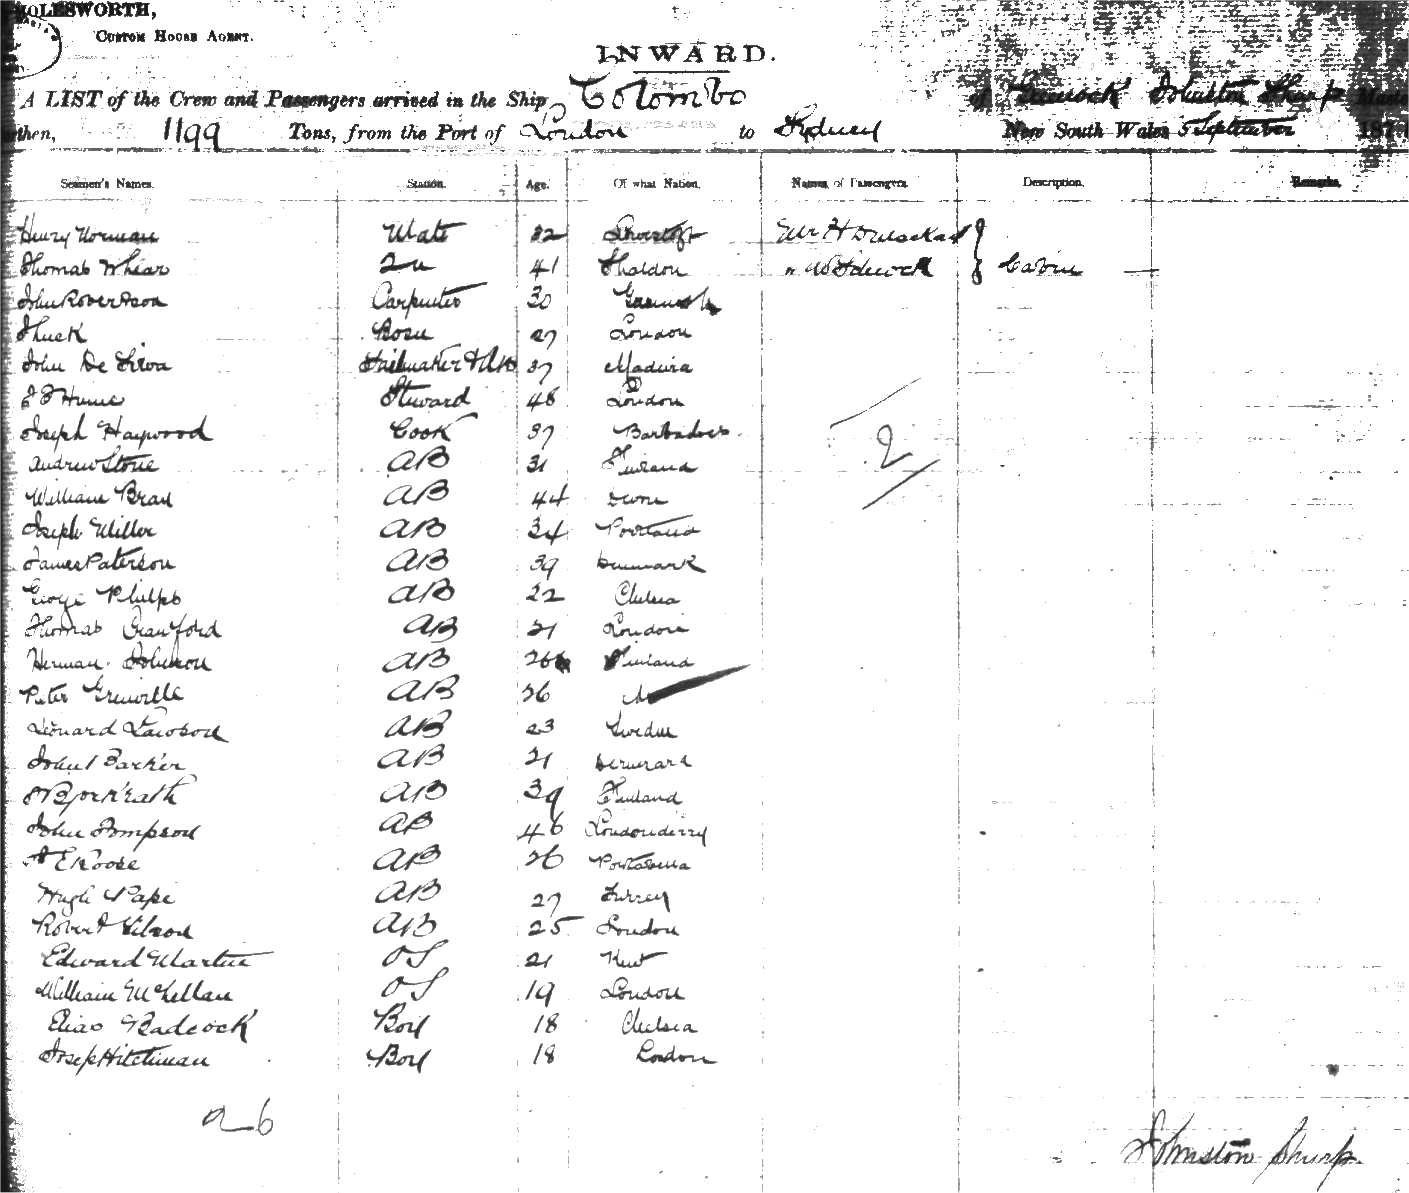 MOLESWORTH,
CUSTOM HOUSE AGENT.
INWARD.
A LIST of the Crew and Passengers arrived in the Ship Colombo of Greenock Johnston Sharp Master
Burthen, 1199 Tons, from the Port of London to Sydney New South Wales 5 September 187
Seamen's Names. Station. Age. Of what Nation. Names of Passengers Description. Remarks.
Henry Norman Mate 32 Mr H
Thomas Whear 2nd 41 Shaldon " Cabin
John Robertson Carpenter 30
Bosn 27 London
John De Silva Sailmaker & AB 37 Madeira
Hume Steward 48 London
Joseph Haywood Cook 37 Barbadoes
Andrew Stone AB 31 Finland
2
William Bray AB 44
Joseph Miller AB 34 Portland
James Paterson AB 39 Denmark
George Philps AB 22 Chelsea
Thomas Crawford AB 21 London
Herman Johnson AB 26 Finland
Peter Grenville AB 26
Leonard Lawson AB 23 Sweden
John Barker AB 21
AB 39 Finland
John Tompson AB 46 Londonderry
AB 26
Hugh Pape AB 27 Surrey
Robert Wilson AB 25 London
Edward Martin OS 21 Kent
William McLellan OS 19 London
Elias Badcock Boy 18 Chelsea
Joseph Hitchman Boy 18 London
26
Johnston Sharp